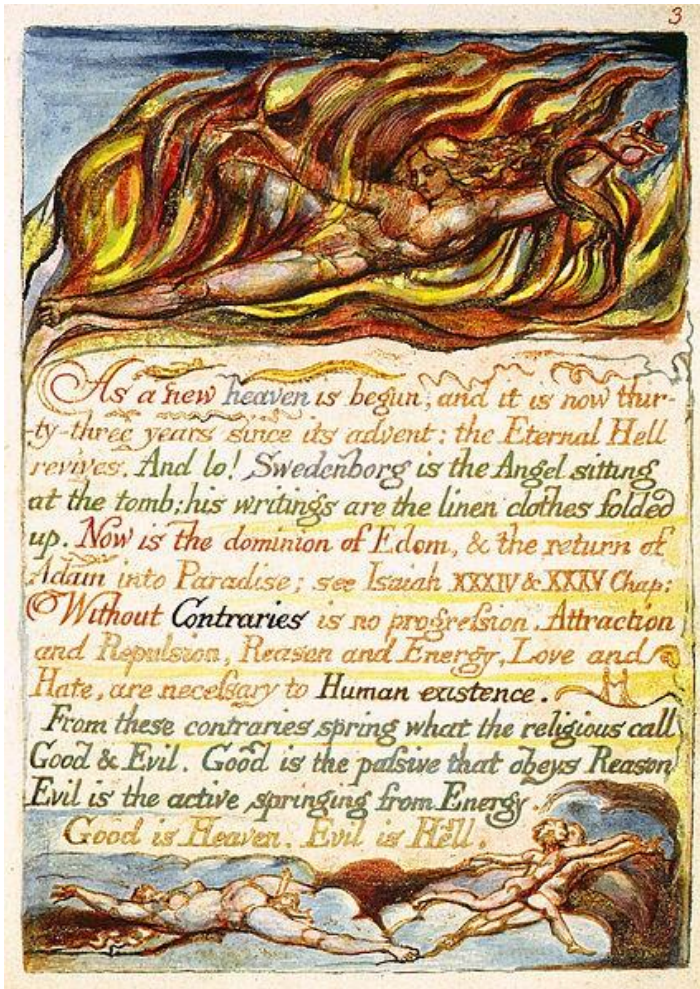 3
As a new heaven is begun, and it is now thir-
ty-three years since its advent: the Eternal Hell
revives. And lo! Swedenborg is the Angel sitting
at the tomb; his writings are the linen clothes folded
up. Now is the dominion of Edom, & the return of
Adam into Paradise; see Isaiah XXXIV & XXXV Chap:
Without Contraries is no progreſsion. Attraction
and Repulsion, Reason and Energy, Love and
Hate, are neceſsary to Human existence.
From these contraries spring what the religious call
Good & Evil. Good is the paſsive that obeys Reason
Evil is the active springing from Energy.
Good is Heaven. Evil is Hell.